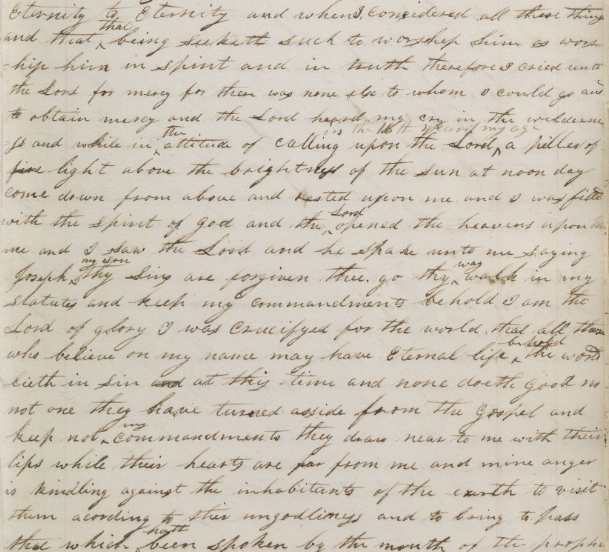 Eternity to Eternity and when I considered all these things
and that that being seeketh such to worship him as wors
-hip him in spirit and in truth therefore I cried unto
the Lord for mercy for there was none else to whom I could go and
to obtain mercy and the Lord heard my cry in the wilderne
ss and while in the attitude of calling upon the Lord in the 16th year of my age a piller of
fire light above the brightness of the sun at noon day
come down from above and rested upon me and I was filled
with the spirit of god and the Lord opened the heavens upon
me and I saw the Lord and he spake unto me saying
Joseph my son thy sins are forgiven thee. go thy way walk in my
statutes and keep my commandments behold I am the
Lord of glory I was crucifyed for the world that all those
who believe on my name may have Eternal life behold the world
lieth in sin and at this time and none doeth good no
not one they have turned asside from the gospel and
keep not my commandments they draw near to me with their
lips while their hearts are far from me and mine anger
is kindling against the inhabitants of the earth to visit
them acording to ther ungodliness and to bring to pass
that which hath been spoken by the mouth of the prophe